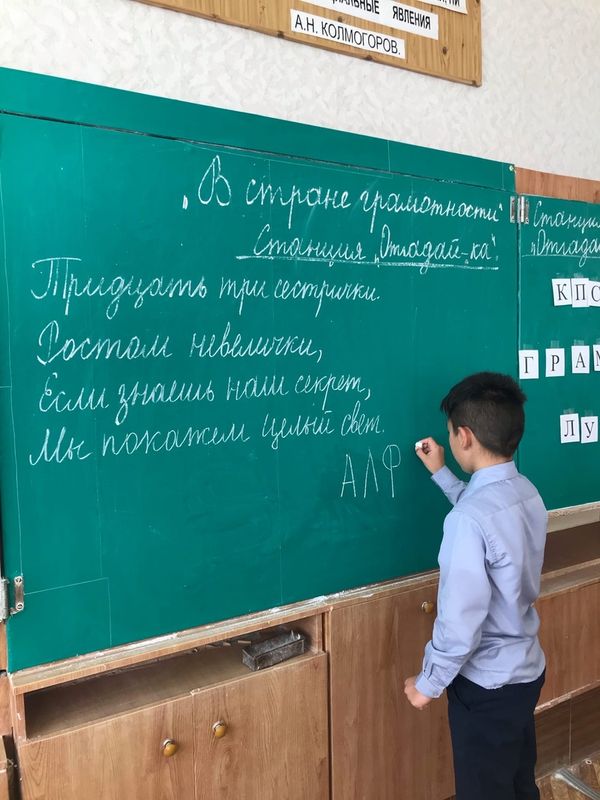 ЦИАЛЬНЫЕ ЯВЛЕНИЯ
А.Н. КОЛМОГОРОВ.
„В стране грамотности"
Станция „Отгадай-ка".
Тридцать три сестрички.
Ростом невелички,
Если знаешь наш секрет,
Мы покажем целый свет.
АЛФ
Станция
„Отгадай
КПС
ГРАМ
ЛУ